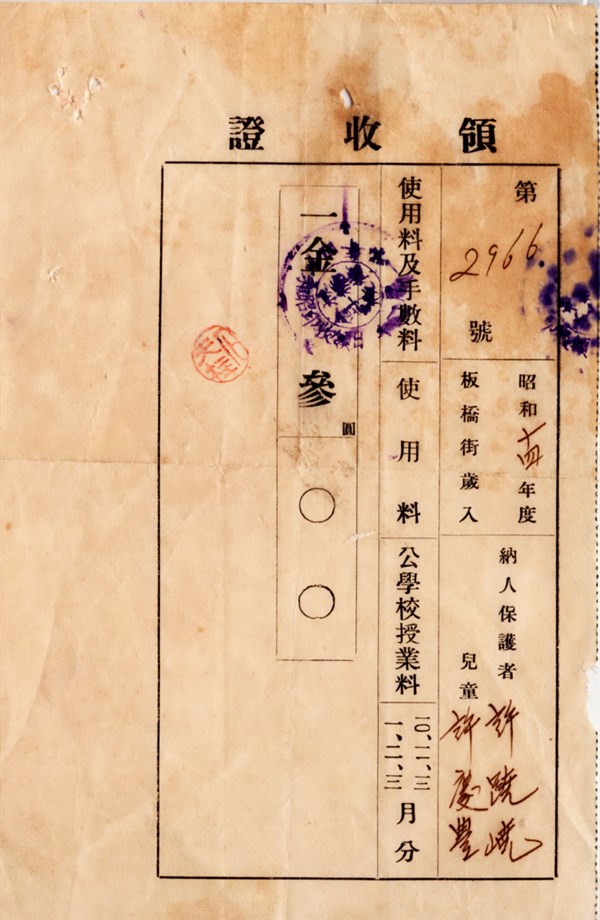 領收證
第 2966 號
昭和十四年度
板橋街歲入
納人保護者 許
兒童 許慶豐
使用料及手數料
使用料
公學校授業料
一〇、一一、一二、
一、二、三
月分
一金參圓〇〇